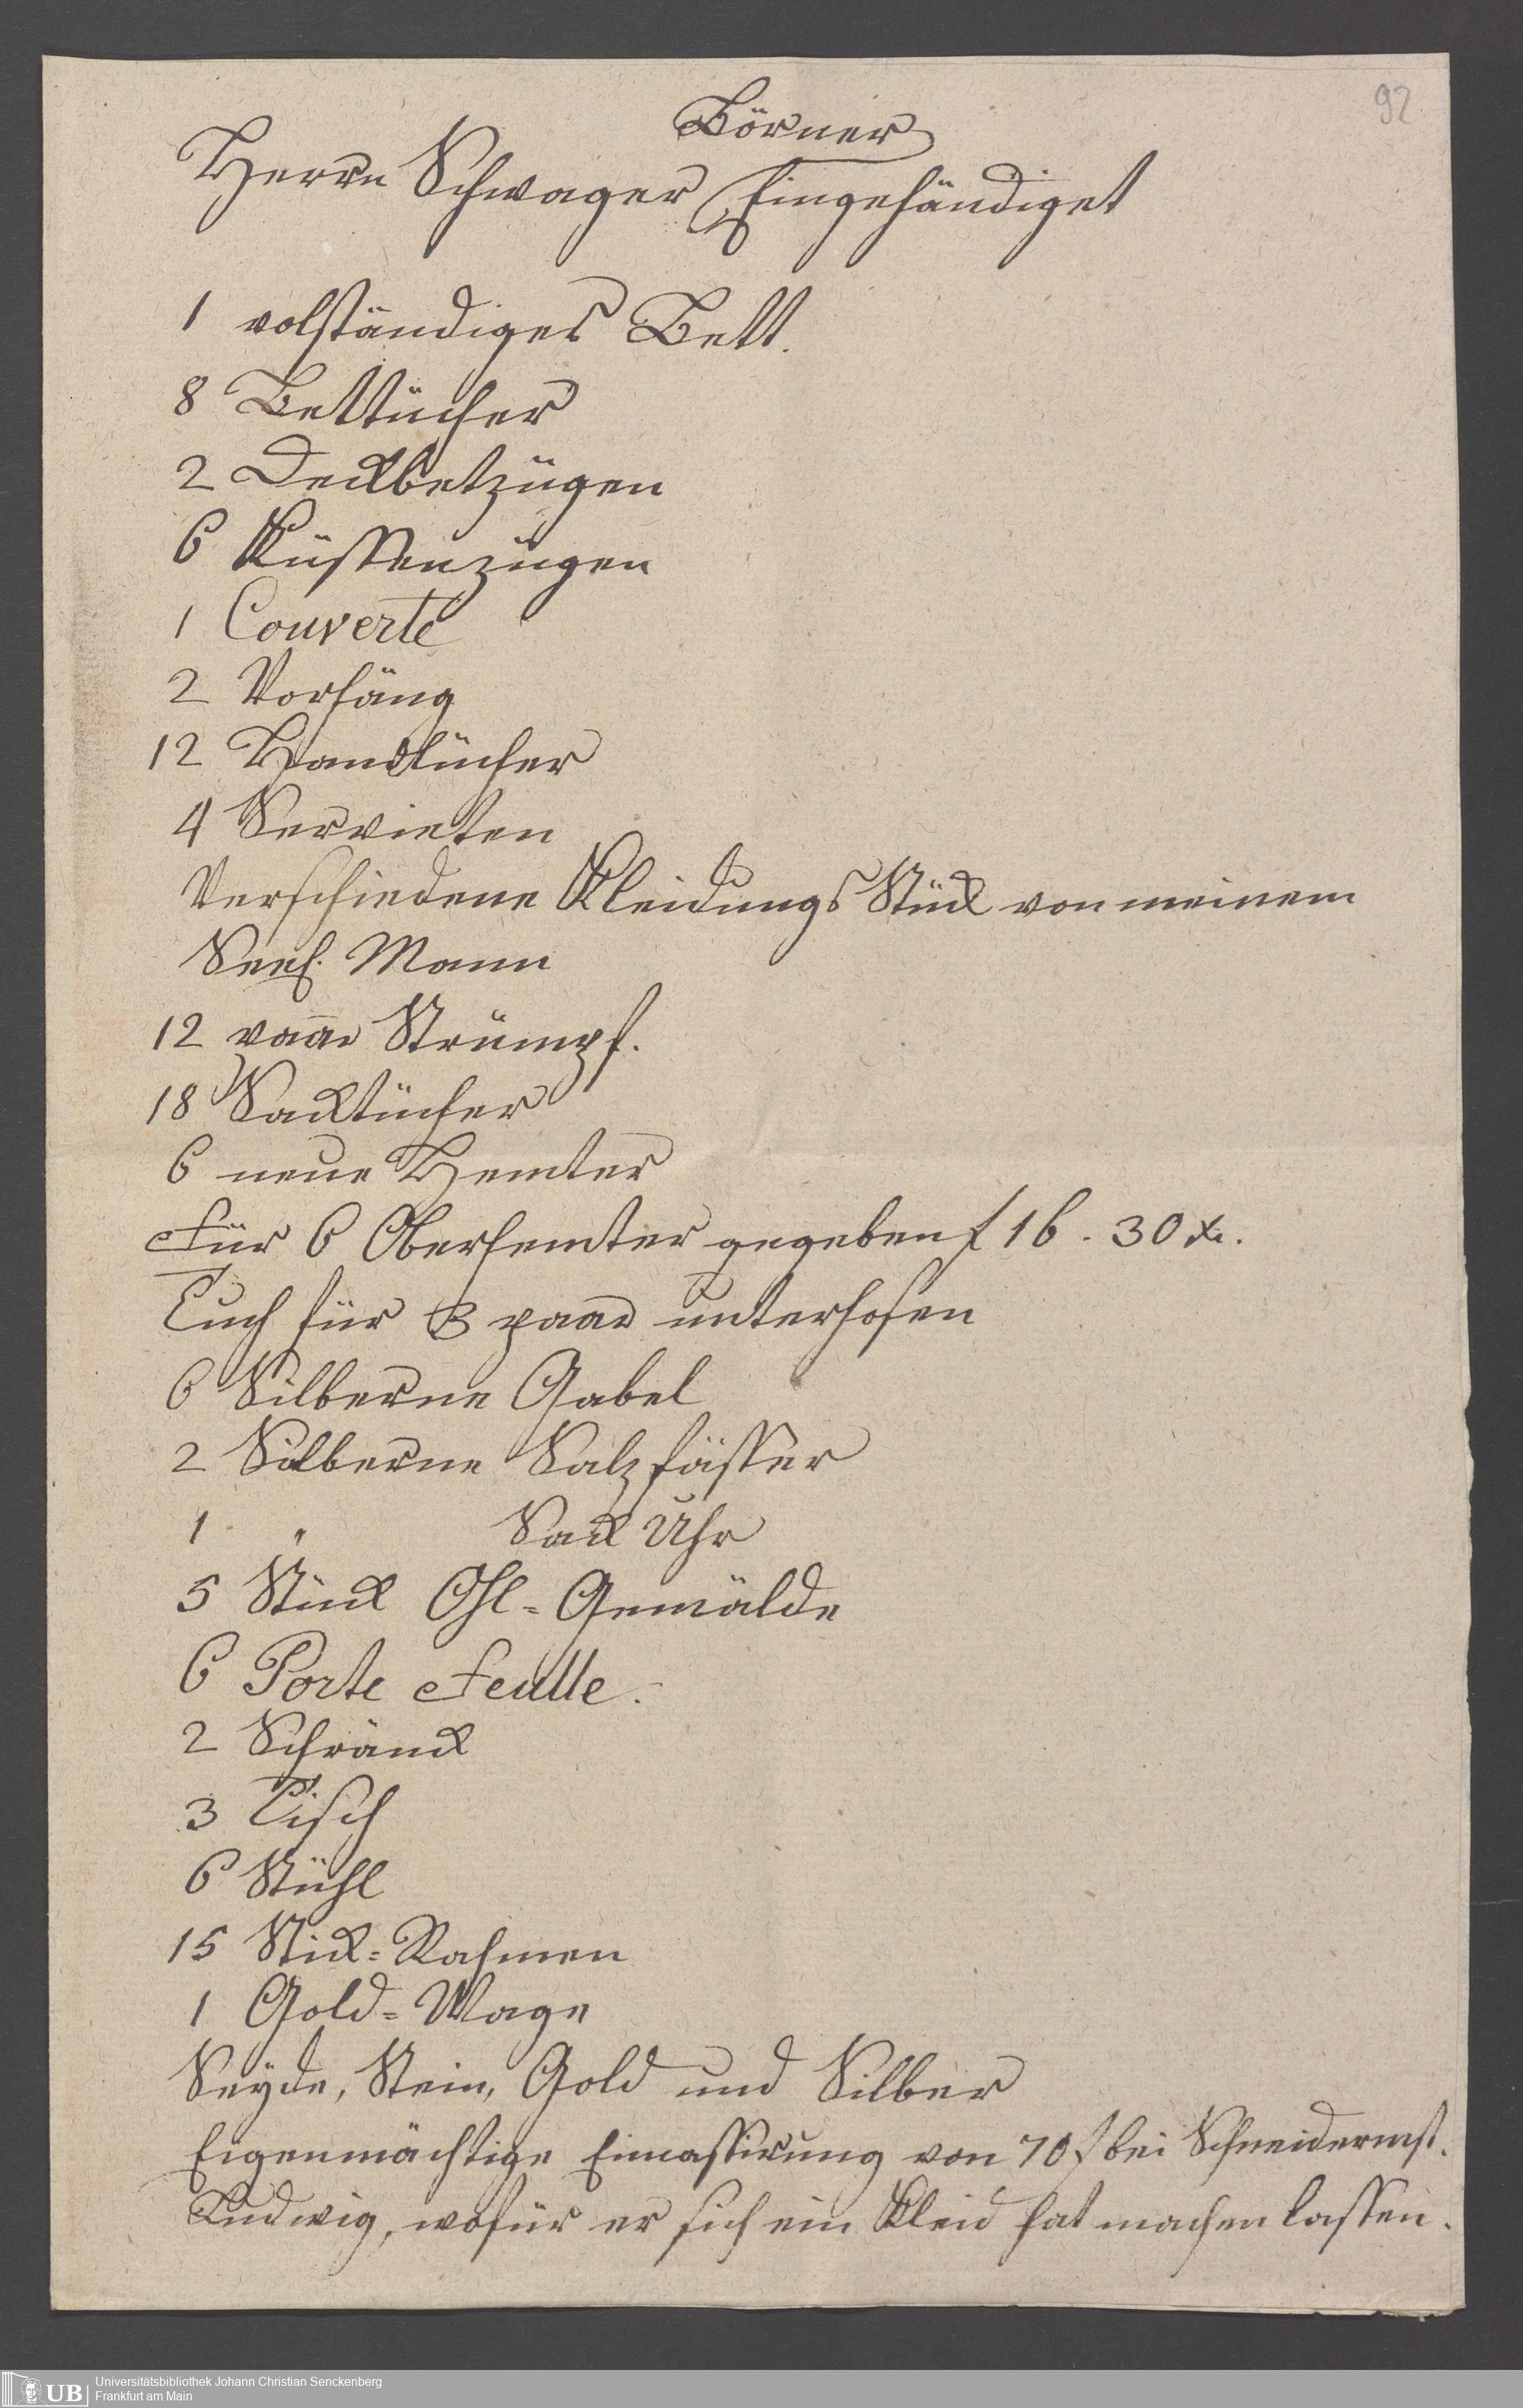 92
Börner
Herrn Schwager Eingehändiget
1 volständiges Bett.
8 Bettücher
2 Deckbetzügen
6 Küssenzügen
1 Couverte
2 Vorhäng
12 Handtücher
4 Servieten
Verschiedene Kleidungs Stück von meinem
Seel. Mann
12 paar Strümpf.
18 Sacktücher
6 neue Hemter
Für 6 Oberhemter gegeben f 16. 30 x.
Tuch für 3 paar unterhosen
6 Silberne Gabel
2 Silberne Salzfässer
1 " Sack Uhr
5 Stück Ohl-Gemälde
6 Porte Feulle.
2 Schränck
3 Tisch
6 Stühl
15 Stick-Rahmen
1 Gold-Wage
Seÿde, Stein, Gold und Silber
Eigenmächtige Eincassirung von 70 f bei Schneidermst.
Ludwig, wofür er sich ein Kleid hat machen lassen.
UB
Universitätsbibliothek Johann Christian Senckenberg
Frankfurt am Main